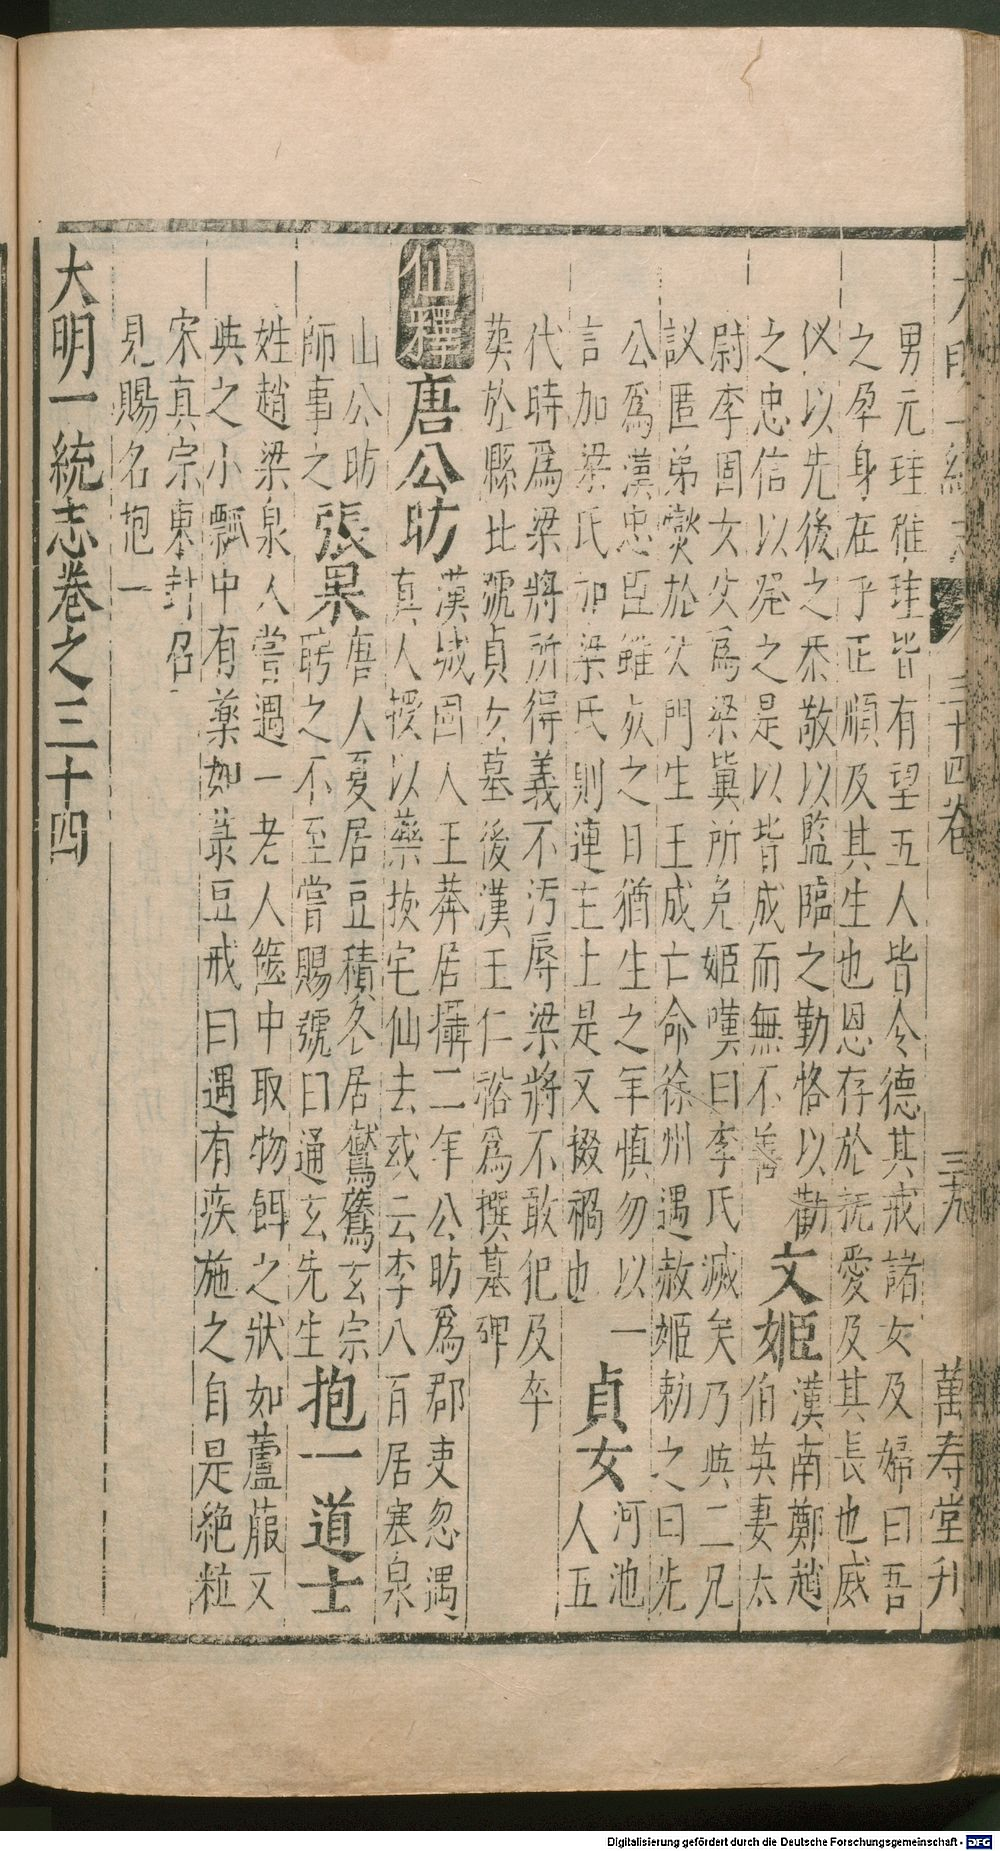 大明一統志 三十四卷 三九 萬寿堂刋
男元珪稚珪皆有望五人皆令德其戒諸女及婦曰吾
之孕身在乎正順及其生也恩存於撫愛及其長也威
儀以先後之恭敬以監臨之勤恪以勸
之忠信以發之是以皆成而無不善
文姬
漢南鄭趙
伯英妻太
尉李固女父為梁冀所免姬嘆曰李氏滅矣乃與二兄
議匿弟燮於父門生王成亡命徐州遇赦姬勑之曰先
公為漢忠臣雖死之日猶生之年慎勿以一
言加梁氏加梁氏則連主上是又掇禍也
貞女
河池
人五
代時爲梁將所得義不污辱梁將不敢犯及卒
葬於縣北號貞女墓後漢王仁裕爲撰墓碑
仙釋
唐公昉
漢城固人王莽居攝二年公昉爲郡吏忽遇
真人授以藥拔宅仙去或云李八百居寒泉
山公昉
師事之
張果
唐人夏居豆積冬居鸑鷟玄宗
聘之不至嘗賜號曰通玄先生
抱一道士
姓趙梁泉人嘗遇一老人篋中取物餌之狀如蘆菔又
與之小瓢中有藥如菉豆戒曰遇有疾施之自是絶粒
宋真宗東封召
見賜名抱一
大明一統志卷之三十四
Digitalisierung gefördert durch die Deutsche Forschungsgemeinschaft - DFG